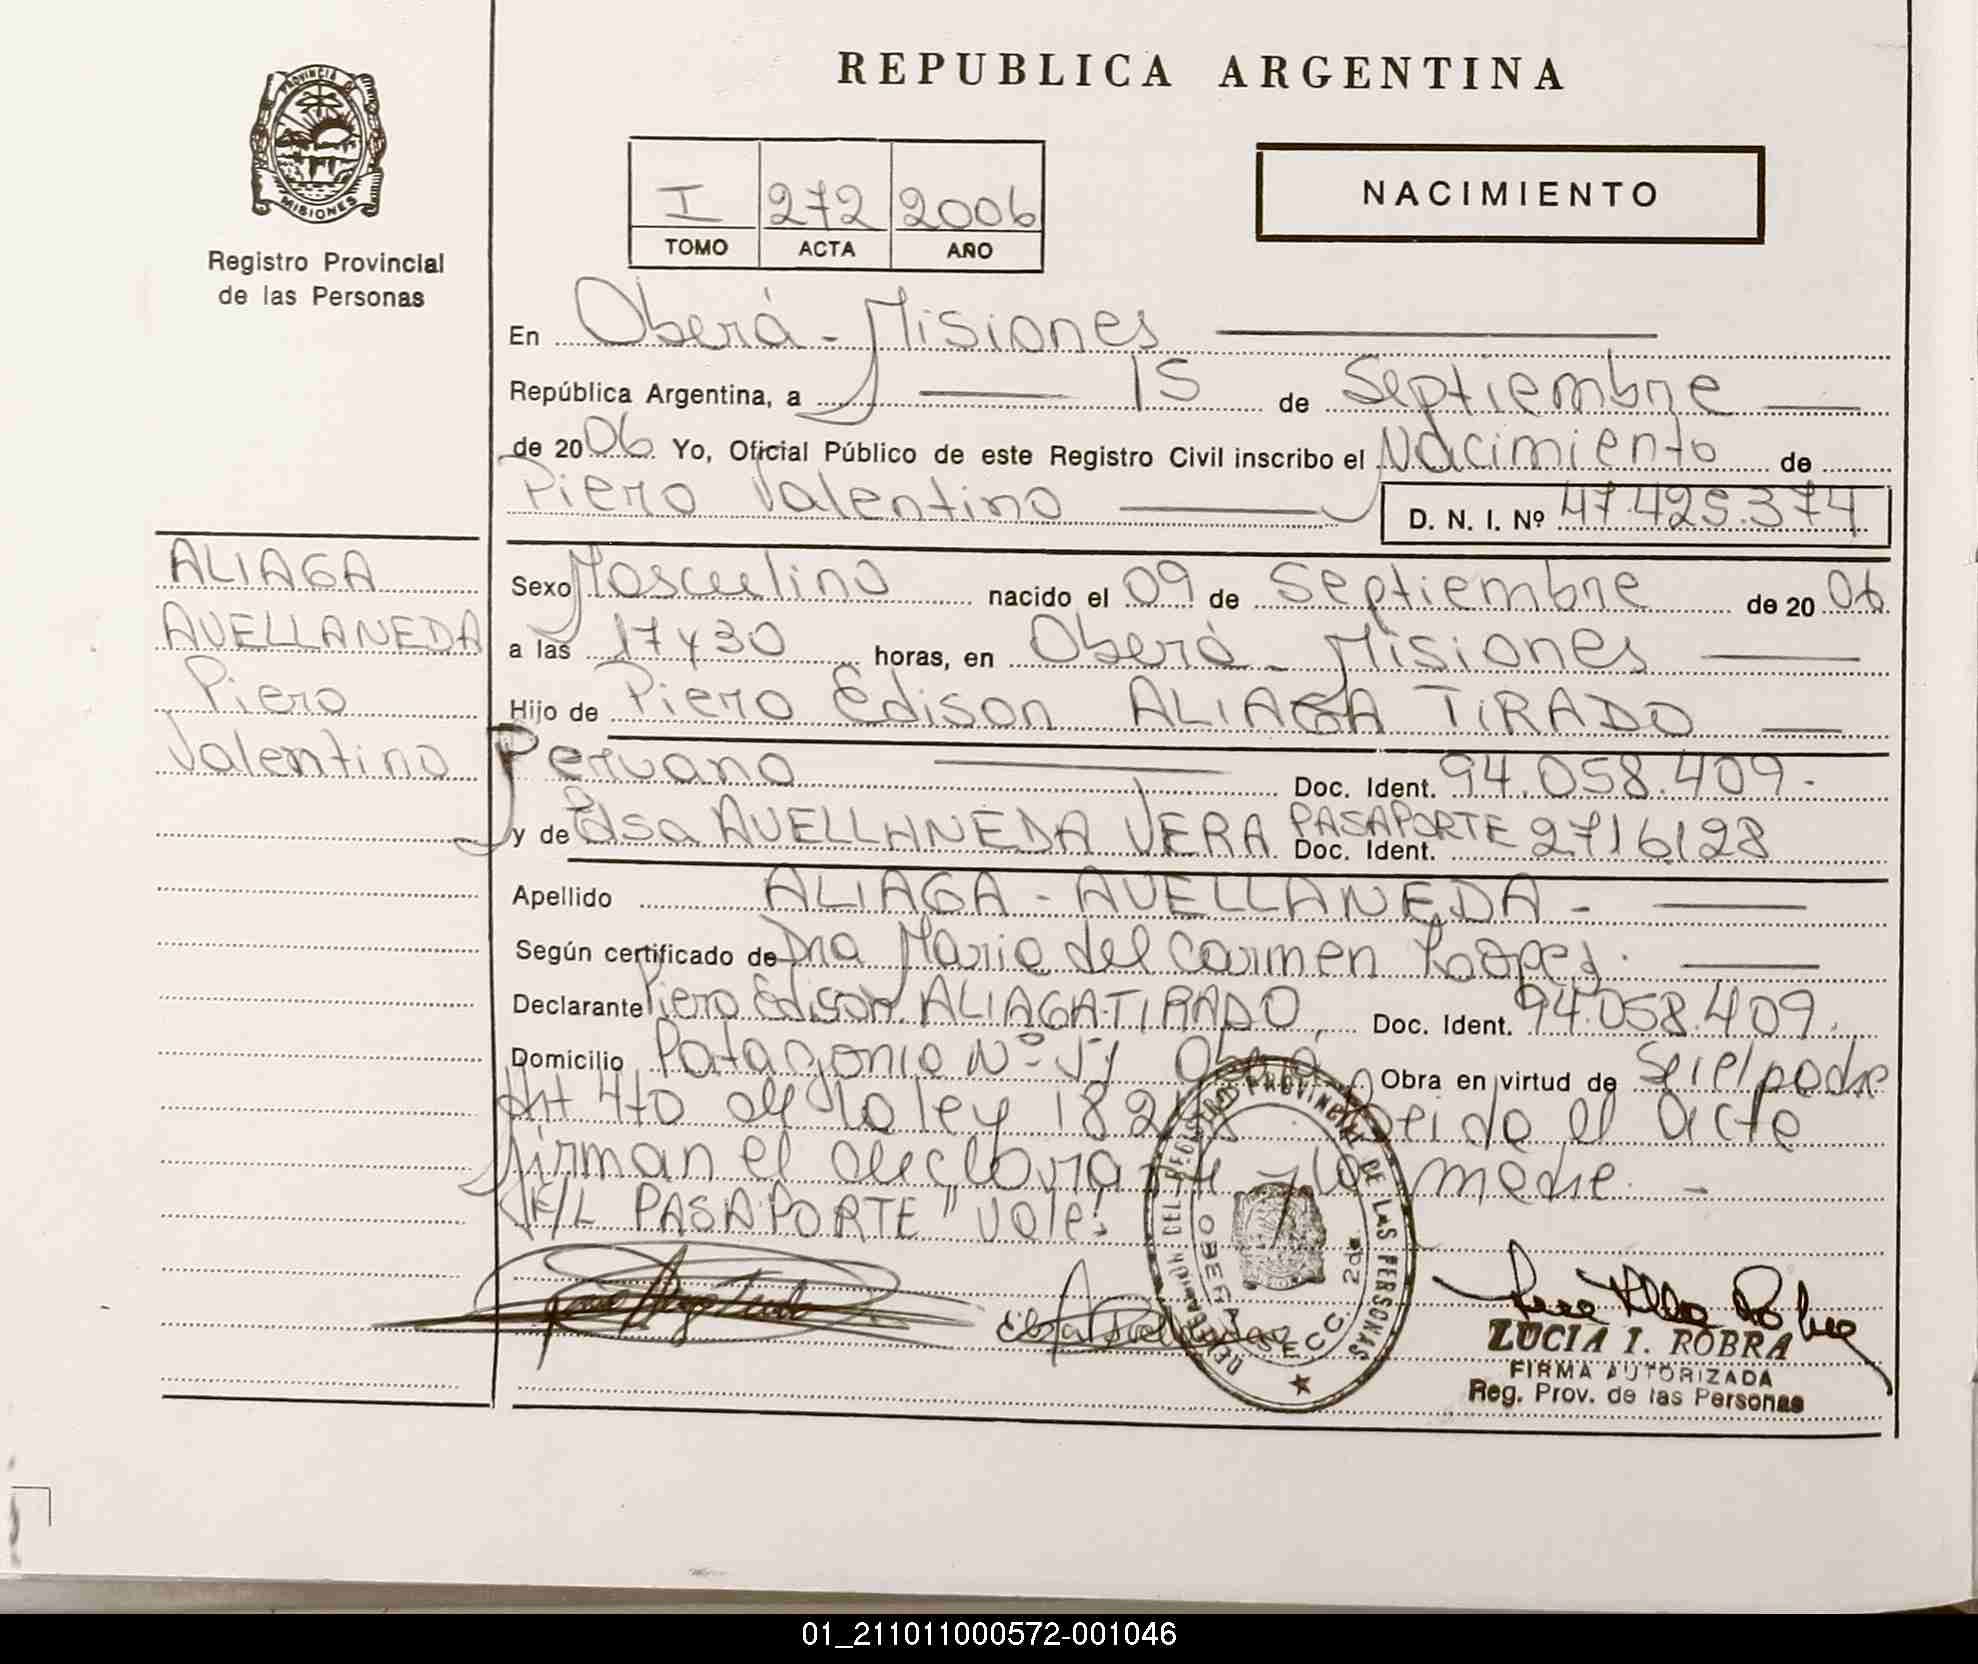 REPUBLICA ARGENTINA
PROVINCIA DE MISIONES
Registro Provincial
de las Personas
I 272 2006
TOMO ACTA AÑO
NACIMIENTO
En Oberá - Misiones
República Argentina, a 15 de Septiembre
de 2006 Yo, Oficial Público de este Registro Civil inscribo el Nacimiento de
Piero Valentino D. N. I. Nº 47.425.374
ALIAGA
AVELLANEDA
Piero
Valentino
Sexo Masculino nacido el 09 de Septiembre de 2006
a las 17 y 30 horas, en Oberá - Misiones
Hijo de Piero Edison ALIAGA TIRADO
Peruano Doc. Ident. 94.058.409.
y de Elsa AVELLANEDA VERA PASAPORTE Doc. Ident. 2716128
Apellido ALIAGA - AVELLANEDA -
Según certificado de Dra Maria del Carmen
Declarante Piero Edison ALIAGA TIRADO Doc. Ident. 94.058.409.
Domicilio Patagonia Nº 51 Oberá Obra en virtud de Ser el padre
Art 4to de la ley 182 el acta
firman el declarante y la madre. -
E/L PASAPORTE "Vale"
DEL REGISTRO PROVINCIAL DE LAS PERSONAS
OBERA SECC. 2da
LUCIA I. ROBRA
FIRMA AUTORIZADA
Reg. Prov. de las Personas
01_211011000572-001046